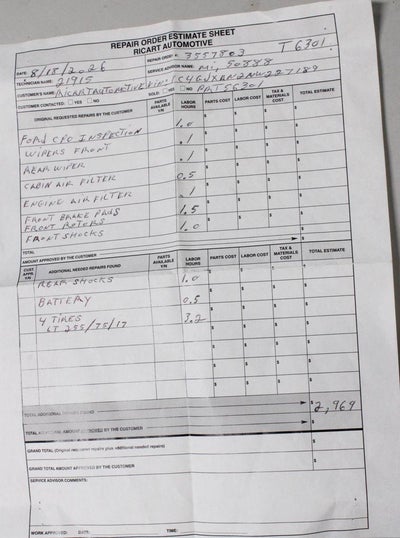 REPAIR ORDER ESTIMATE SHEET
RICART AUTOMOTIVE
DATE: 8/18/2026 REPAIR ORDER #: 3557803 T 6301
TECHNICIAN NAME: 21915 SERVICE ADVISOR NAME: 50888
CUSTOMER'S NAME RICART AUTOMOTIVE
CUSTOMER CONTACTED: YES NO SOLD: YES NO
ORIGINAL REQUESTED REPAIRS BY THE CUSTOMER PARTS AVAILABLE Y/N LABOR HOURS PARTS COST LABOR COST TAX & MATERIALS COST TOTAL ESTIMATE
FORD CPO INSPECTION 1.0
WIPERS FRONT .1
REAR WIPER .1
CABIN AIR FILTER 0.5
ENGINE AIR FILTER .1
FRONT BRAKE PADS 1.5
FRONT ROTORS
FRONT SHOCKS 1.0
TOTAL
AMOUNT APPROVED BY THE CUSTOMER
CUST. APP. Y/N ADDITIONAL NEEDED REPAIRS FOUND PARTS AVAILABLE Y/N LABOR HOURS PARTS COST LABOR COST TAX & MATERIALS COST TOTAL ESTIMATE
REAR SHOCKS 1.0
BATTERY 0.5
4 TIRES 3.2
LT 255/75/17
TOTAL ADDITIONAL REPAIRS FOUND $ 2,969
TOTAL ADDITIONAL AMOUNT APPROVED BY THE CUSTOMER $
GRAND TOTAL (Original requested repairs plus additional needed repairs) $
GRAND TOTAL AMOUNT APPROVED BY THE CUSTOMER $
SERVICE ADVISOR COMMENTS:
WORK APPROVED: DATE: TIME: